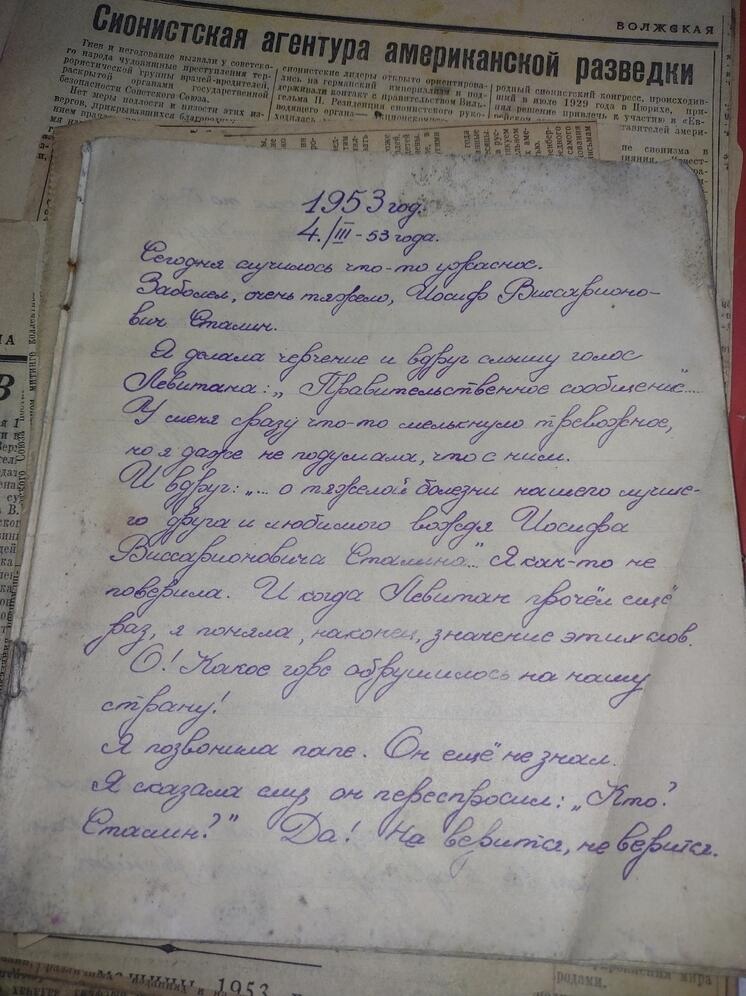 ВОЛЖСКАЯ
Сионистская агентура американской разведки
Гнев и негодование вызвали у советско-
го народа чудовищные преступления тер-
рористической группы врачей-вредителей,
раскрытой органами государственной
безопасности Советского Союза.
Нет меры подлости и низости этих из-
вергов, прикрывавшихся
сионистские лидеры открыто ориентирова-
лись на германский империализм и под-
держивали контакт с правительством Виль-
гельма II. Резиденция сионистского руко-
водящего органа—
ходилась
родный сионистский конгресс, происходив-
ший в июле 1929 года в Цюрихе, при-
нял решение привлечь к участию в «Ев-
1953 год.
4./III-53 года.
Сегодня случилось что-то ужасное.
Заболел, очень тяжело, Иосиф Виссарионо-
вич Сталин.
Я делала черчение и вдруг слышу голос
Левитана: „Правительственное сообщение"...
У меня сразу что-то мелькнуло тревожное,
но я даже не подумала, что с ним.
И вдруг: „... о тяжелой болезни нашего лучше-
го друга и любимого вождя Иосифа
Виссарионовича Сталина..." Я как-то не
поверила. И когда Левитан прочёл ещё
раз, я поняла, наконец, значение этих слов.
О! Какое горе обрушилось на нашу
страну!
Я позвонила папе. Он ещё не знал.
Я сказала ему, он переспросил: „Кто?
Сталин?" Да! Не верится, не верится.
1953
родами.